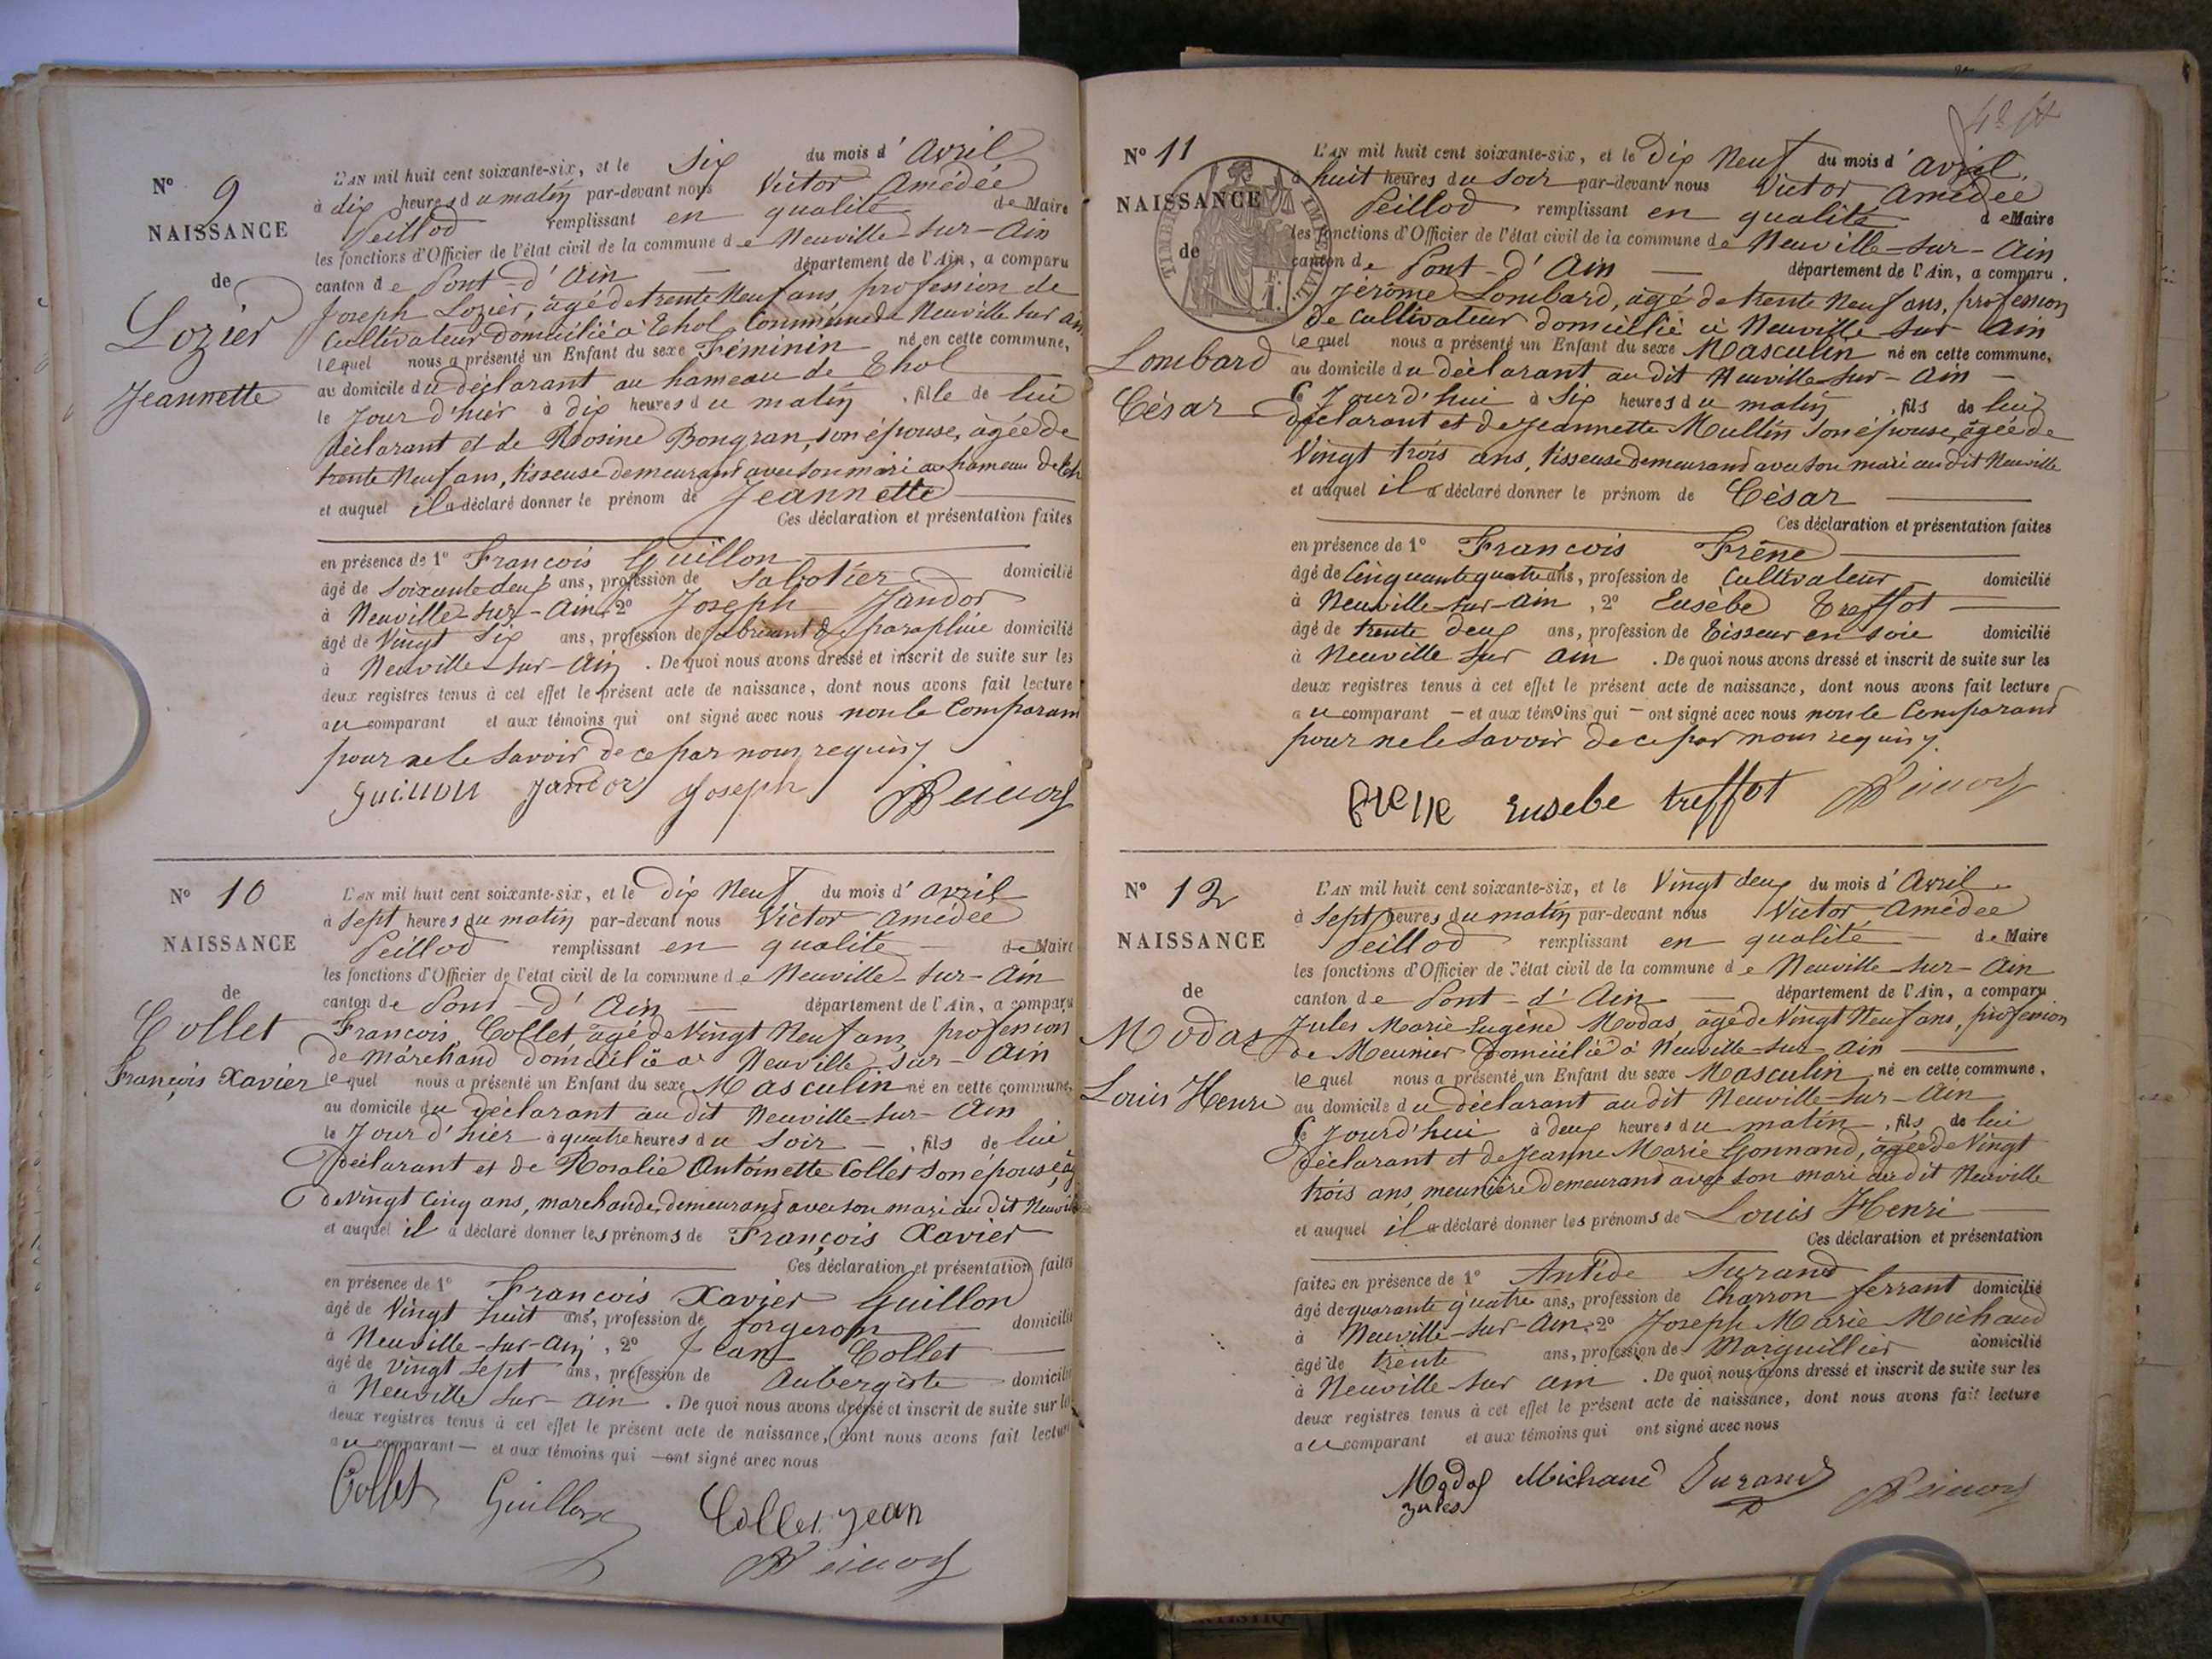 N° 9
NAISSANCE
de
Lozier
Jeannette
L'AN mil huit cent soixante-six, et le Six du mois d'Avril
à dix heures du matin par-devant nous Victor Amédée
Peillod remplissant en qualité de Maire
les fonctions d'Officier de l'état civil de la commune de Neuville-sur-Ain
canton de Pont-d'Ain département de l'Ain, a comparu
Joseph Lozier, âgé de trente Neuf ans, profession de
Cultivateur domicilié à Thol, Commune de Neuville sur Ain
lequel nous a présenté un Enfant du sexe Féminin né en cette commune,
au domicile du déclarant au hameau de Thol
le Jour d'hier à dix heures du matin, fille de lui
déclarant et de Rosine Bongran, son épouse, âgée de
trente Neuf ans, tisseuse demeurant avec son mari au hameau de
et auquel il a déclaré donner le prénom de Jeannette
Ces déclaration et présentation faites
en présence de 1° François Guillon
âgé de soixante deux ans, profession de Sabotier domicilié
à Neuville-sur-Ain, 2° Joseph Jandor
âgé de Vingt Six ans, profession de fabricant de parapluie domicilié
à Neuville-sur-Ain. De quoi nous avons dressé et inscrit de suite sur les
deux registres tenus à cet effet le présent acte de naissance, dont nous avons fait lecture
au comparant et aux témoins qui ont signé avec nous non le Comparant
pour ne le savoir de ce par nous requis
Guillon Jandor Joseph Peillod
N° 10
NAISSANCE
de
Collet
François Xavier
L'AN mil huit cent soixante-six, et le dix Neuf du mois d'avril
à Sept heures du matin par-devant nous Victor Amédée
Peillod remplissant en qualité de Maire
les fonctions d'Officier de l'état civil de la commune de Neuville-sur-Ain
canton de Pont-d'Ain département de l'Ain, a comparu
François Collet, âgé de Vingt Neuf ans, profession
de Marchand domicilié à Neuville-sur-Ain
lequel nous a présenté un Enfant du sexe Masculin né en cette commune,
au domicile du déclarant au dit Neuville-sur-Ain
le Jour d'hier à quatre heures du Soir, fils de lui
déclarant et de Rosalie Antoinette Collet son épouse,
de Vingt Cinq ans, marchande, demeurant avec son mari au dit Neuville
et auquel il a déclaré donner les prénoms de François Xavier
Ces déclaration et présentation faites
en présence de 1° François Xavier Guillon
âgé de Vingt huit ans, profession de forgeron domicilié
à Neuville-sur-Ain, 2° Jean Collet
âgé de vingt sept ans, profession de Aubergiste domicilié
à Neuville sur-Ain. De quoi nous avons dressé et inscrit de suite sur les
deux registres tenus à cet effet le présent acte de naissance, dont nous avons fait lecture
au comparant et aux témoins qui ont signé avec nous
Collet Guillon Collet Jean
Peillod
N° 11
NAISSANCE
de
Lombard
César
TIMBRE IMPERIAL
L'AN mil huit cent soixante-six, et le Dix Neuf du mois d'avril
à huit heures du Soir par-devant nous Victor Amédée
Peillod remplissant en qualité de Maire
les fonctions d'Officier de l'état civil de la commune de Neuville-sur-Ain
canton de Pont-d'Ain département de l'Ain, a comparu.
Jérôme Lombard, âgé de trente Neuf ans, profession
de Cultivateur domicilié à Neuville-sur Ain
lequel nous a présenté un Enfant du sexe Masculin né en cette commune,
au domicile du déclarant au dit Neuville-sur-Ain
ce Jourd'hui à Six heures du matin, fils de lui
déclarant et de Jeannette Mullin son épouse, âgée de
Vingt trois ans, tisseuse demeurant avec son mari au dit Neuville
et auquel il a déclaré donner le prénom de César
Ces déclaration et présentation faites
en présence de 1° François Frêne
âgé de Cinquante quatre ans, profession de Cultivateur domicilié
à Neuville-sur-Ain, 2° Eusèbe Treffot
âgé de trente deux ans, profession de Tisseur en soie domicilié
à Neuville sur Ain. De quoi nous avons dressé et inscrit de suite sur les
deux registres tenus à cet effet le présent acte de naissance, dont nous avons fait lecture
au comparant et aux témoins qui ont signé avec nous non le Comparant
pour ne le savoir de ce par nous requis
Eusebe treffot Peillod
N° 12
NAISSANCE
de
Modas
Louis Henri
L'AN mil huit cent soixante-six, et le Vingt deux du mois d'Avril
à Sept heures du matin par-devant nous Victor Amédée
Peillod remplissant en qualité de Maire
les fonctions d'Officier de l'état civil de la commune de Neuville-sur-Ain
canton de Pont-d'Ain département de l'Ain, a comparu
Jules Marie Eugène Modas, âgé de Vingt Neuf ans, profession
de Meunier domicilié à Neuville-sur-Ain
lequel nous a présenté un Enfant du sexe Masculin né en cette commune,
au domicile du déclarant au dit Neuville-sur-Ain
ce Jourd'hui à deux heures du matin, fils de lui
déclarant et de Jeanne Marie Gonnand, âgée de Vingt
trois ans, meunière demeurant avec son mari au dit Neuville
et auquel il a déclaré donner les prénoms de Louis Henri
Ces déclaration et présentation
faites en présence de 1° Antide Durand
âgé de quarante quatre ans, profession de Charron ferrant domicilié
à Neuville-sur-Ain, 2° Joseph Marie Michaud
âgé de trente ans, profession de Marguillier domicilié
à Neuville-sur Ain. De quoi nous avons dressé et inscrit de suite sur les
deux registres tenus à cet effet le présent acte de naissance, dont nous avons fait lecture
au comparant et aux témoins qui ont signé avec nous
Modas Michaud Durand Peillod
Jules